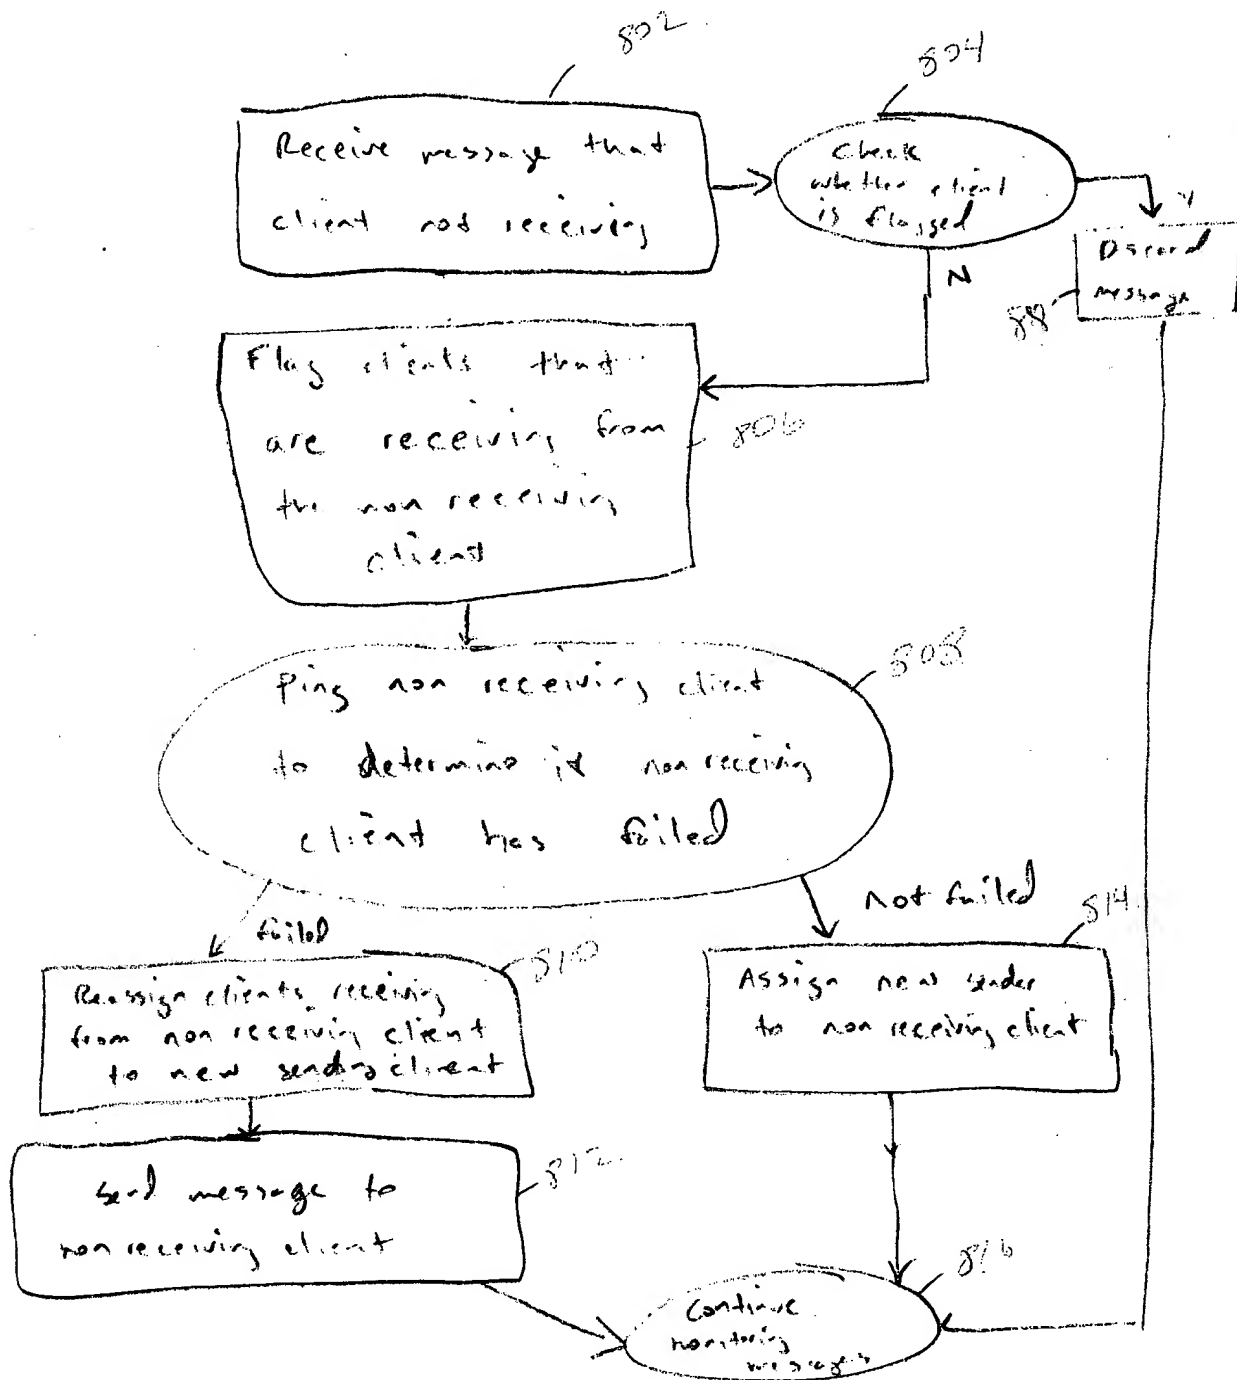 802
804
Receive message that
client not receiving
Check
whether client
is flagged
Y
N
Discard
message
Flag clients that
are receiving from
the non receiving
client
806
808
Ping non receiving client
to determine if non receiving
client has failed
failed
not failed
810
814
Reassign clients receiving
from non receiving client
to new sending client
Assign new sender
to non receiving client
812
Send message to
non receiving client
816
Continue
monitoring
messages